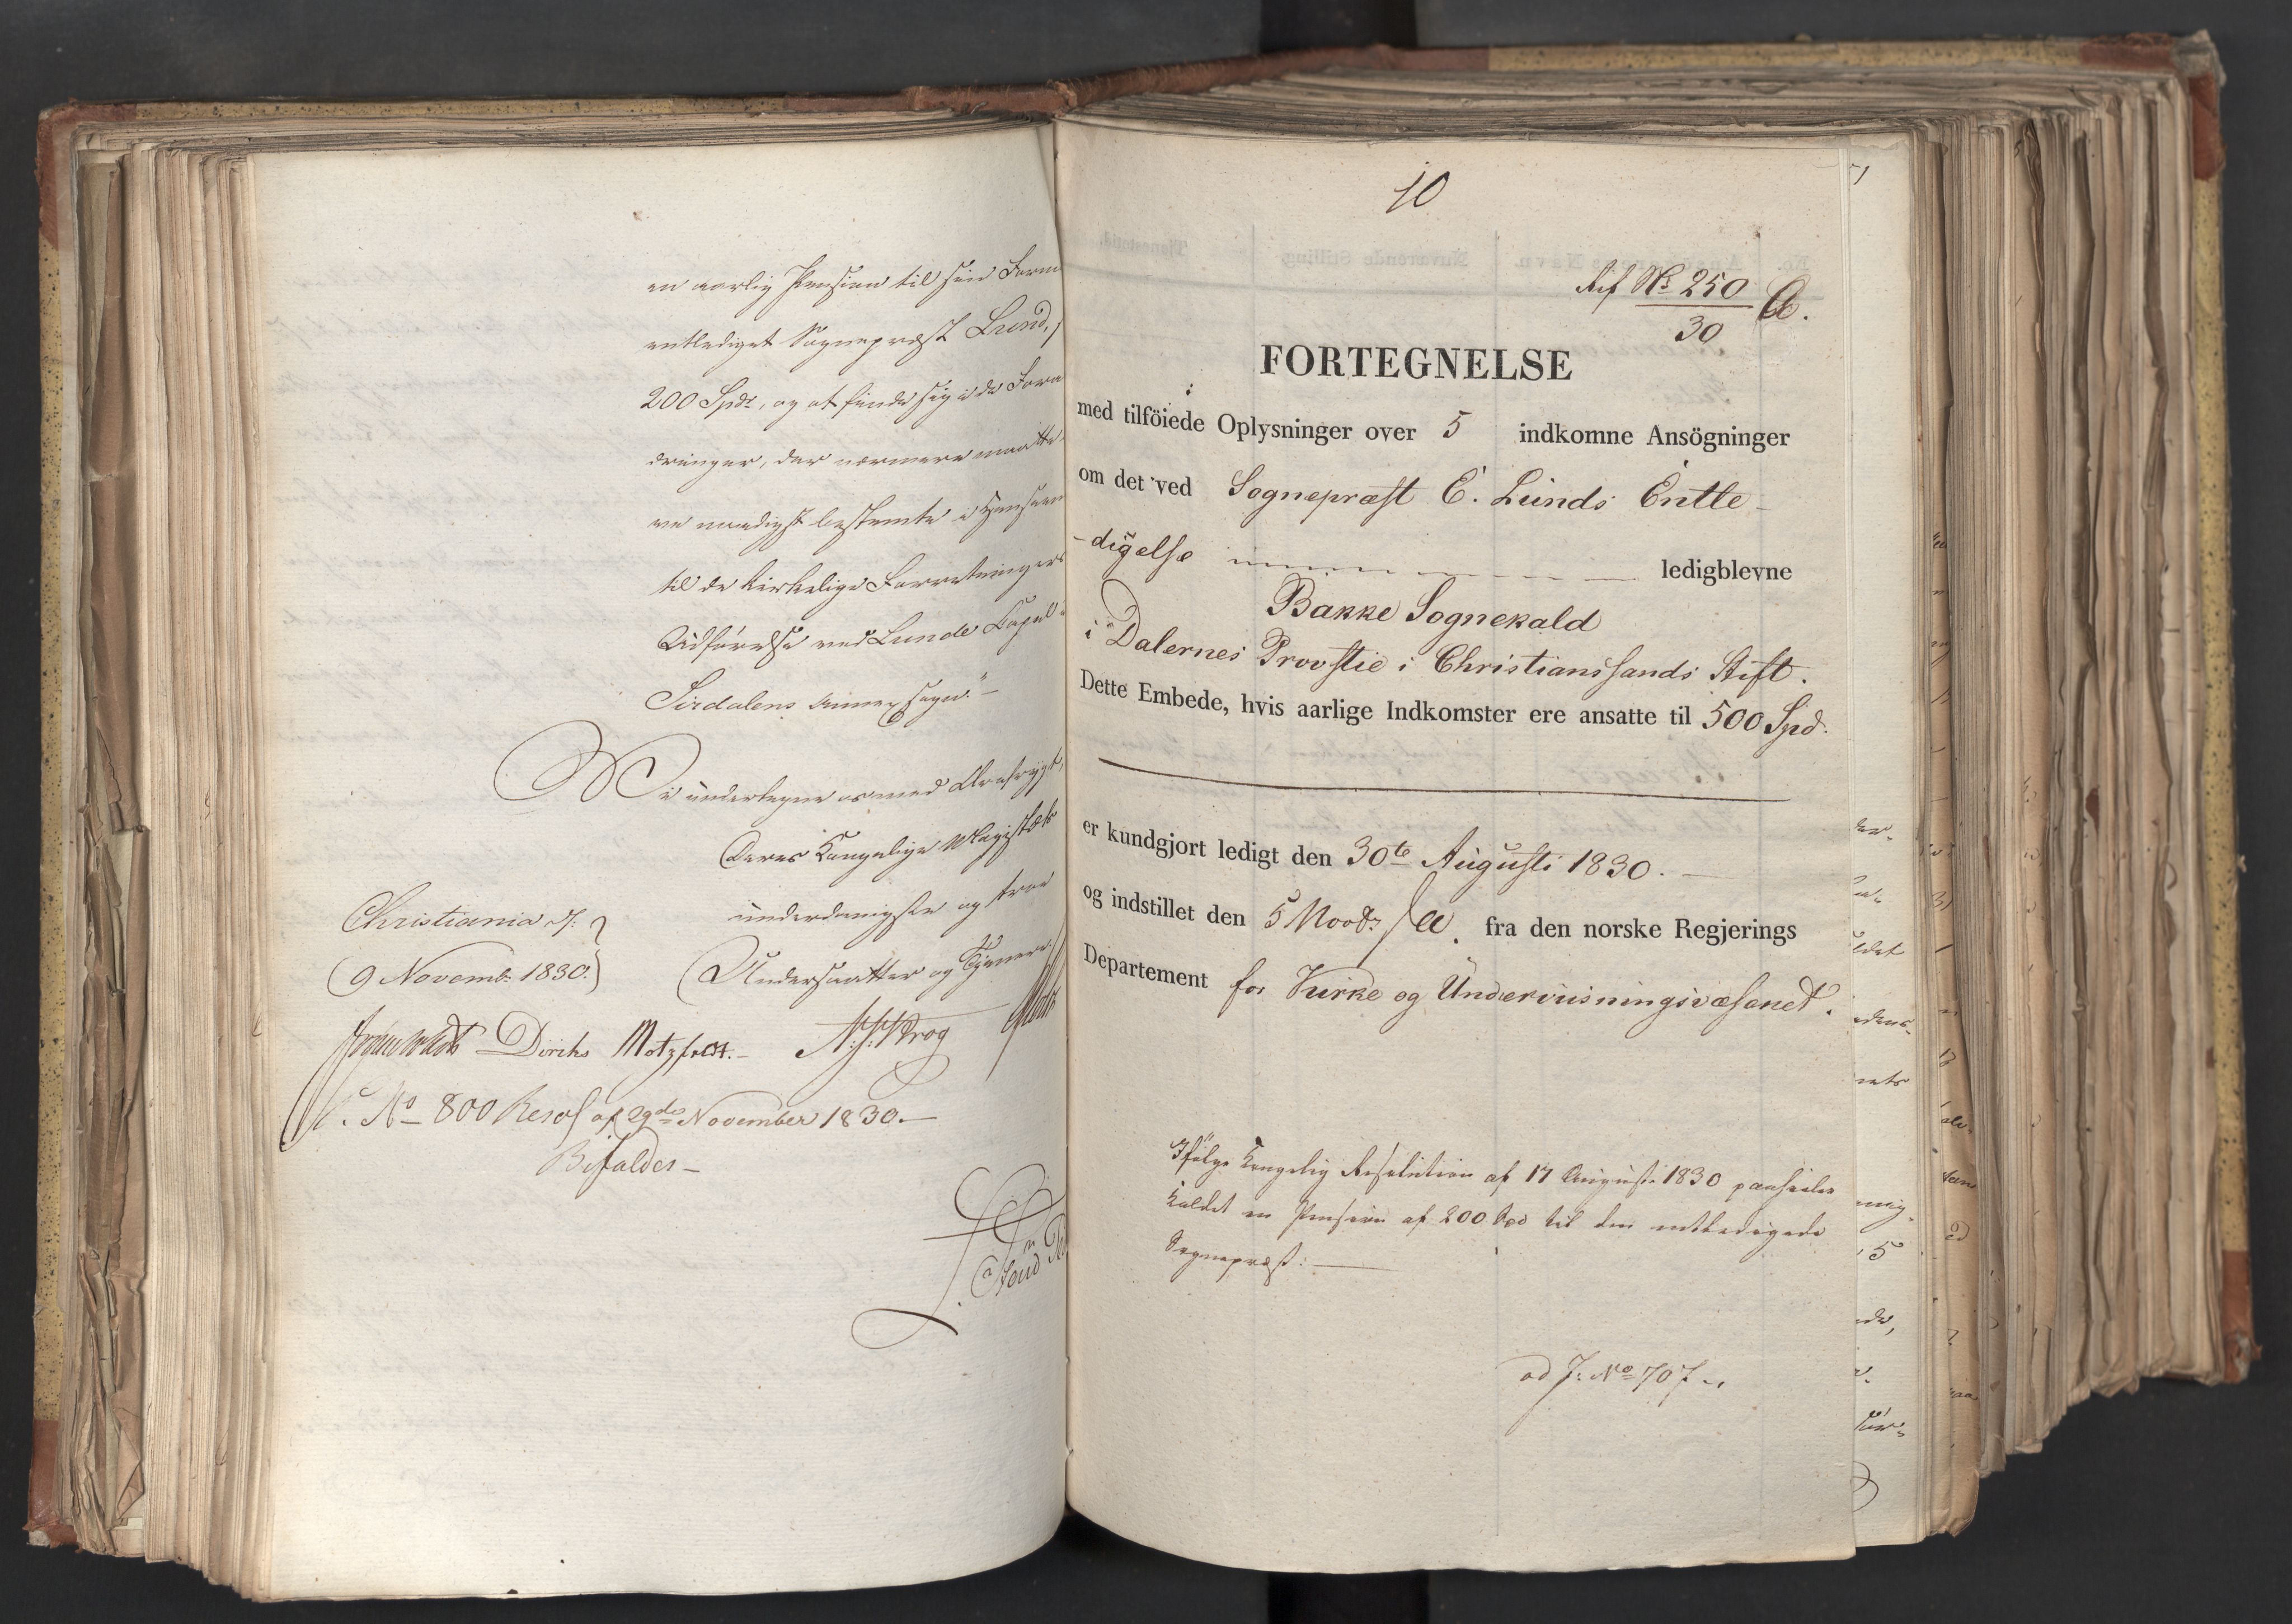 en aarlig Pension til sin Form
entlediget Sognepræst Lund,
200 Spdr, og at finde sig i de Foran
dringer, der nærmere maatte
ve naadigst bestemte i Henseen
til de kirkelige Forretningers
Udførelse ved Lunde Capel
Sirdalens Annexsogn."
Vi undertegne os med Ærefrygt,
Deres Kongelige Majestæts
underdanigste og troe
Undersaatter og Tjenere.
Christiania d.
9 Novemb. 1830.
Diriks Motzfeldt. Krog
No 800 Resol af 29de November 1830.
Bifaldes
10
Ref No 250
30
FORTEGNELSE
med tilföiede Oplysninger over 5 indkomne Ansögninger
om det ved Sognepræst E. Lunds Entle-
-digelse ledigblevne
Bakke Sognekald
i Dalernes Provstie i Christianssands Stift.
Dette Embede, hvis aarlige Indkomster ere ansatte til 500 Spd.
er kundgjort ledigt den 30te August 1830.
og indstillet den 5 Novbr s. A. fra den norske Regjerings
Departement for Kirke og Underviisningsvæsenet.
Ifølge Kongelig Resolution af 17 August 1830 paahviler
Kaldet en Pension af 200 Spd til den entledigede
Sognepræst.
ad J: No 707